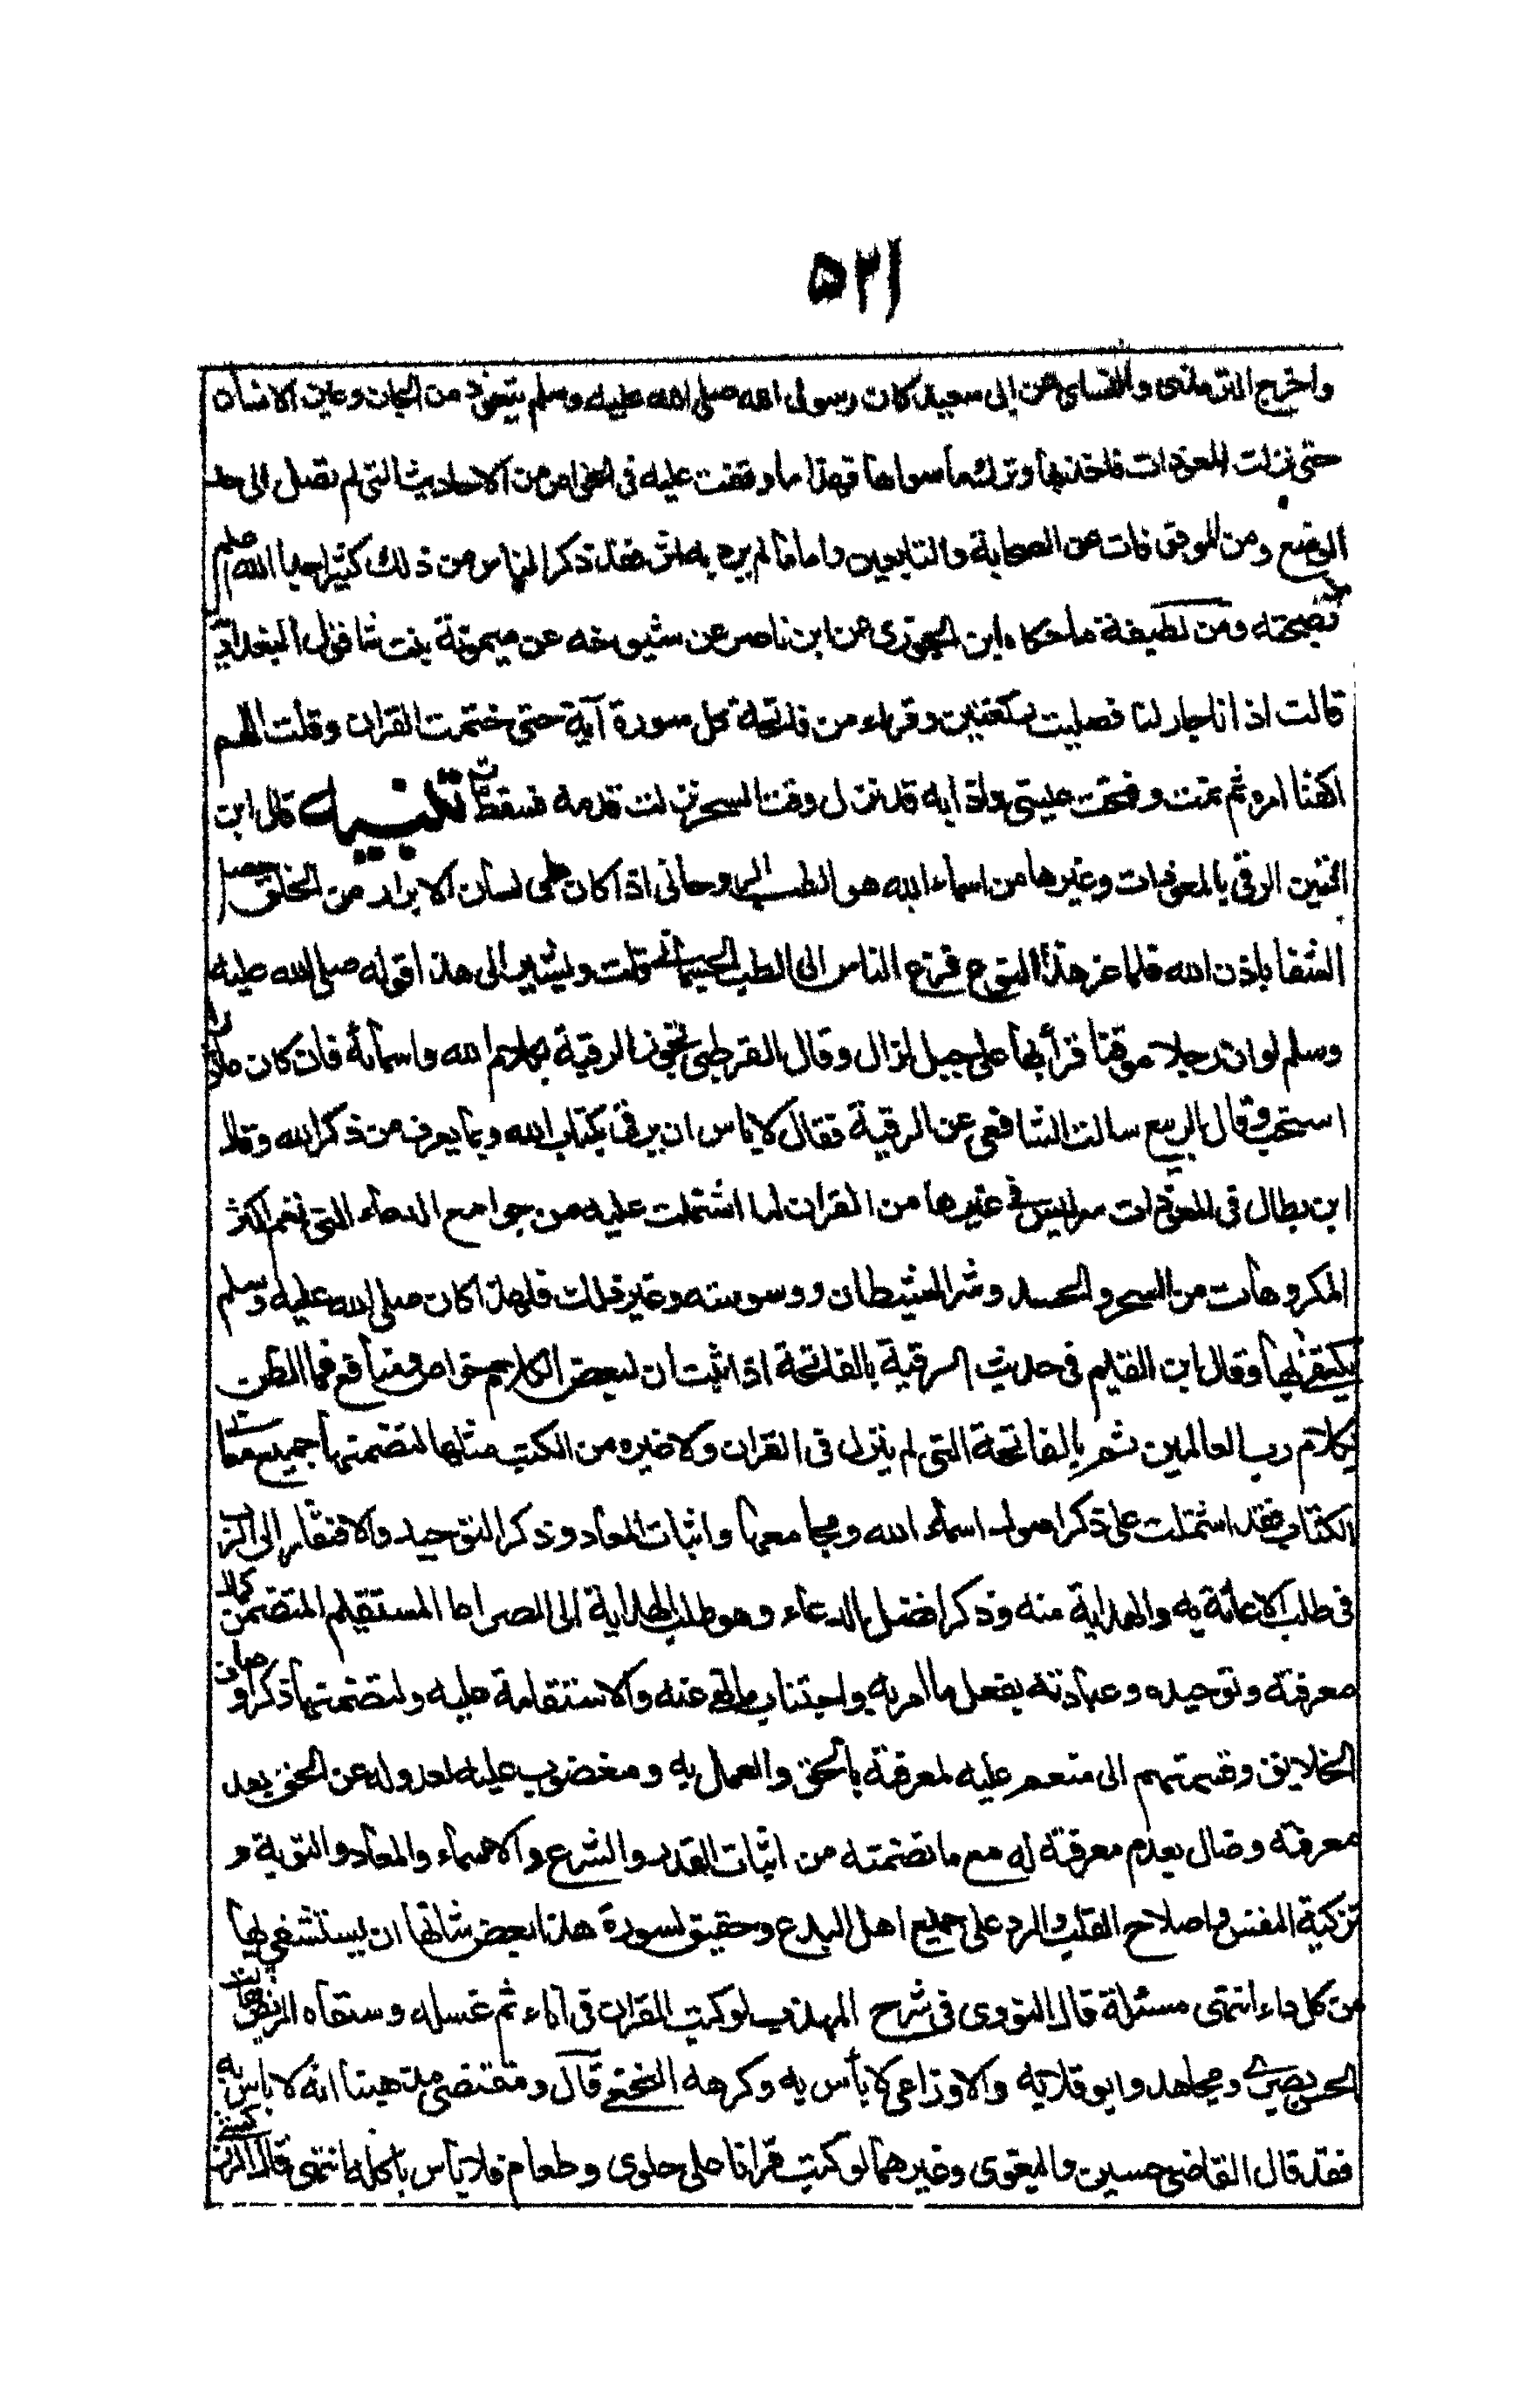 ٥٢١
واخرج الترمذى والنساى عن ابى سعيد كان رسول الله صلى الله عليه وسلم يتعوذ من الجان وعين الانسان
حتى نزلت المعوذات فاخذ بها وترك ما سواها فهذا ما وقفت عليه فى الخواص من الاحاديث التى لم تصل الى حد
الوضع ومن الموقوفات عن الصحابة والتابعين واما ما لم يرد به اثر فقد ذكر الناس من ذلك كثيرا جدا الله اعلم
بصحته ومن لطيفة ما حكاه ابن الجوزى عن ابن ناصر عن شيوخه عن ميمونة بنت شاقول البغدادية
قالت اذانا جار لنا فصليت ركعتين وقراء من فاتحة كل سورة آية حتى ختمت القران وقلت اللهم
اكفنا امره ثم نمت وفتحت عينى واذا به قد نزل وقت السحر نزلت قدمه فسقط تنبيه قال ابن
التين الرقى بالمعوذات وغيرها من اسماء الله هو الطب الروحانى اذا كان على لسان الابرار من الخلق حصل
الشفا باذن الله فلما عز هذا النوع فزع الناس الى الطب الجسمانى قلت ويشير الى هذا قوله صلى الله عليه
وسلم لو ان رجلا موقنا قرأ بها على جبل لزال وقال القرطبى تجوز الرقية بكلام الله واسمائه فان كان ماثورا
استحب وقال الربيع سالت الشافعى عن الرقية فقال لا باس ان يرقى بكتاب الله وبما يعرف من ذكر الله وقال
ابن بطال فى المعوذات سر ليس فى غيرها من القران لما اشتملت عليه من جوامع الدعاء التى تعم اكثر
المكروهات من السحر والحسد وشر الشيطان ووسوسته وغير ذلك فلهذا كان صلى الله عليه وسلم
يكتفى بها وقال ابن القيم فى حديث الرقية بالفاتحة اذا ثبت ان لبعض الكلام خواص ومنافع فما الظن
بكلام رب العالمين ثم بالفاتحة التى لم ينزل فى القران ولا غيره من الكتب مثلها لتضمنها جميع معانى
الكتاب فقد اشتملت على ذكر اصول اسماء الله ومجامعها واثبات المعاد وذكر التوحيد والافتقار الى الرب
فى طلب الاعانة به والهداية منه وذكر افضل الدعاء وهو طلب الهداية الى الصراط المستقيم المتضمن كمال
معرفته وتوحيده وعبادته بفعل ما امر به واجتناب ما نهى عنه والاستقامة عليه ولتضمنها ذكر اوصاف
الخلايق وقسمتهم الى منعم عليه لمعرفته بالحق والعمل به ومغضوب عليه لعدوله عن الحق بعد
معرفته وضال بعدم معرفته له مع ما تضمنته من اثبات القدر والشرع والاسماء والمعاد والتوبة و
تزكية النفس واصلاح القلب والرد على جميع اهل البدع وحقيق لسورة هذا بعض شانها ان يستشفى بها
من كل داء انتهى مسئلة قال النووى فى شرح المهذب لو كتب القران فى اناء ثم غسله وسقاه المريض فقال
الحسن بصرى ومجاهد وابو قلابه والاوزاعى لا بأس به وكرهه النخعى قال ومقتضى مذهبنا انه لا باس به
فقد قال القاضى حسين والبغوى وغيرهما لو كتب قرانا على حلوى وطعام فلا بأس باكله انتهى قال الزركشى